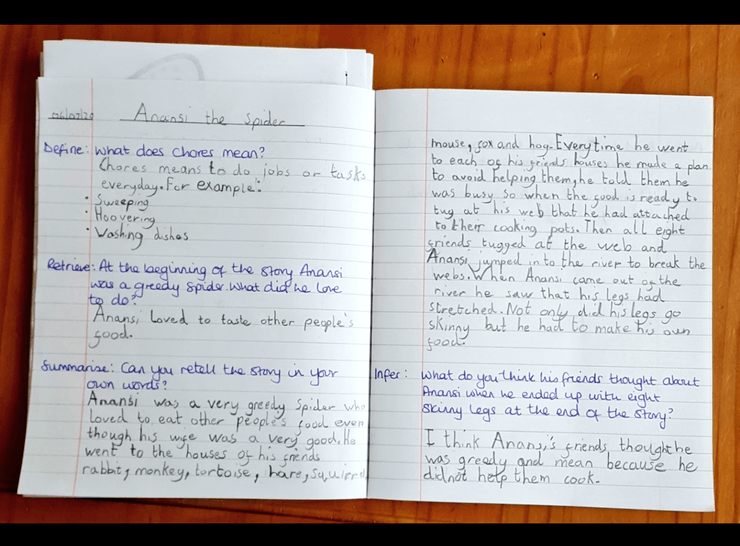 06/07/20 Anansi the Spider
Define: What does Chores mean?
Chores means to do jobs or tasks
everyday. For example:
• Sweeping
• Hoovering
• Washing dishes
Retrieve: At the beginning of the story Anansi
was a greedy spider. What did he love
to do?
Anansi Loved to taste other people's
food.
Summarise: Can you retell the story in your
own words?
Anansi was a very greedy Spider who
Loved to eat other people's food even
though his wife was a very good. He
went to the houses of his friends
rabbit, monkey, tortoise, hare, squirrel,
mouse, fox and hog. Everytime he went
to each of his friends houses he made a plan
to avoid helping them, he told them he
was busy so when the food is ready to
tug at his web that he had attached
to their cooking pots. Then all eight
friends tugged at the web and
Anansi jumped into the river to break the
webs. When Anansi came out of the
river he saw that his legs had
stretched. Not only did his legs go
skinny but he had to make his own
food.
Infer: What do you think his friends thought about
Anansi when he ended up with eight
skinny legs at the end of the story?
I think Anansi's friends thought he
was greedy and mean because he
didnot help them cook.